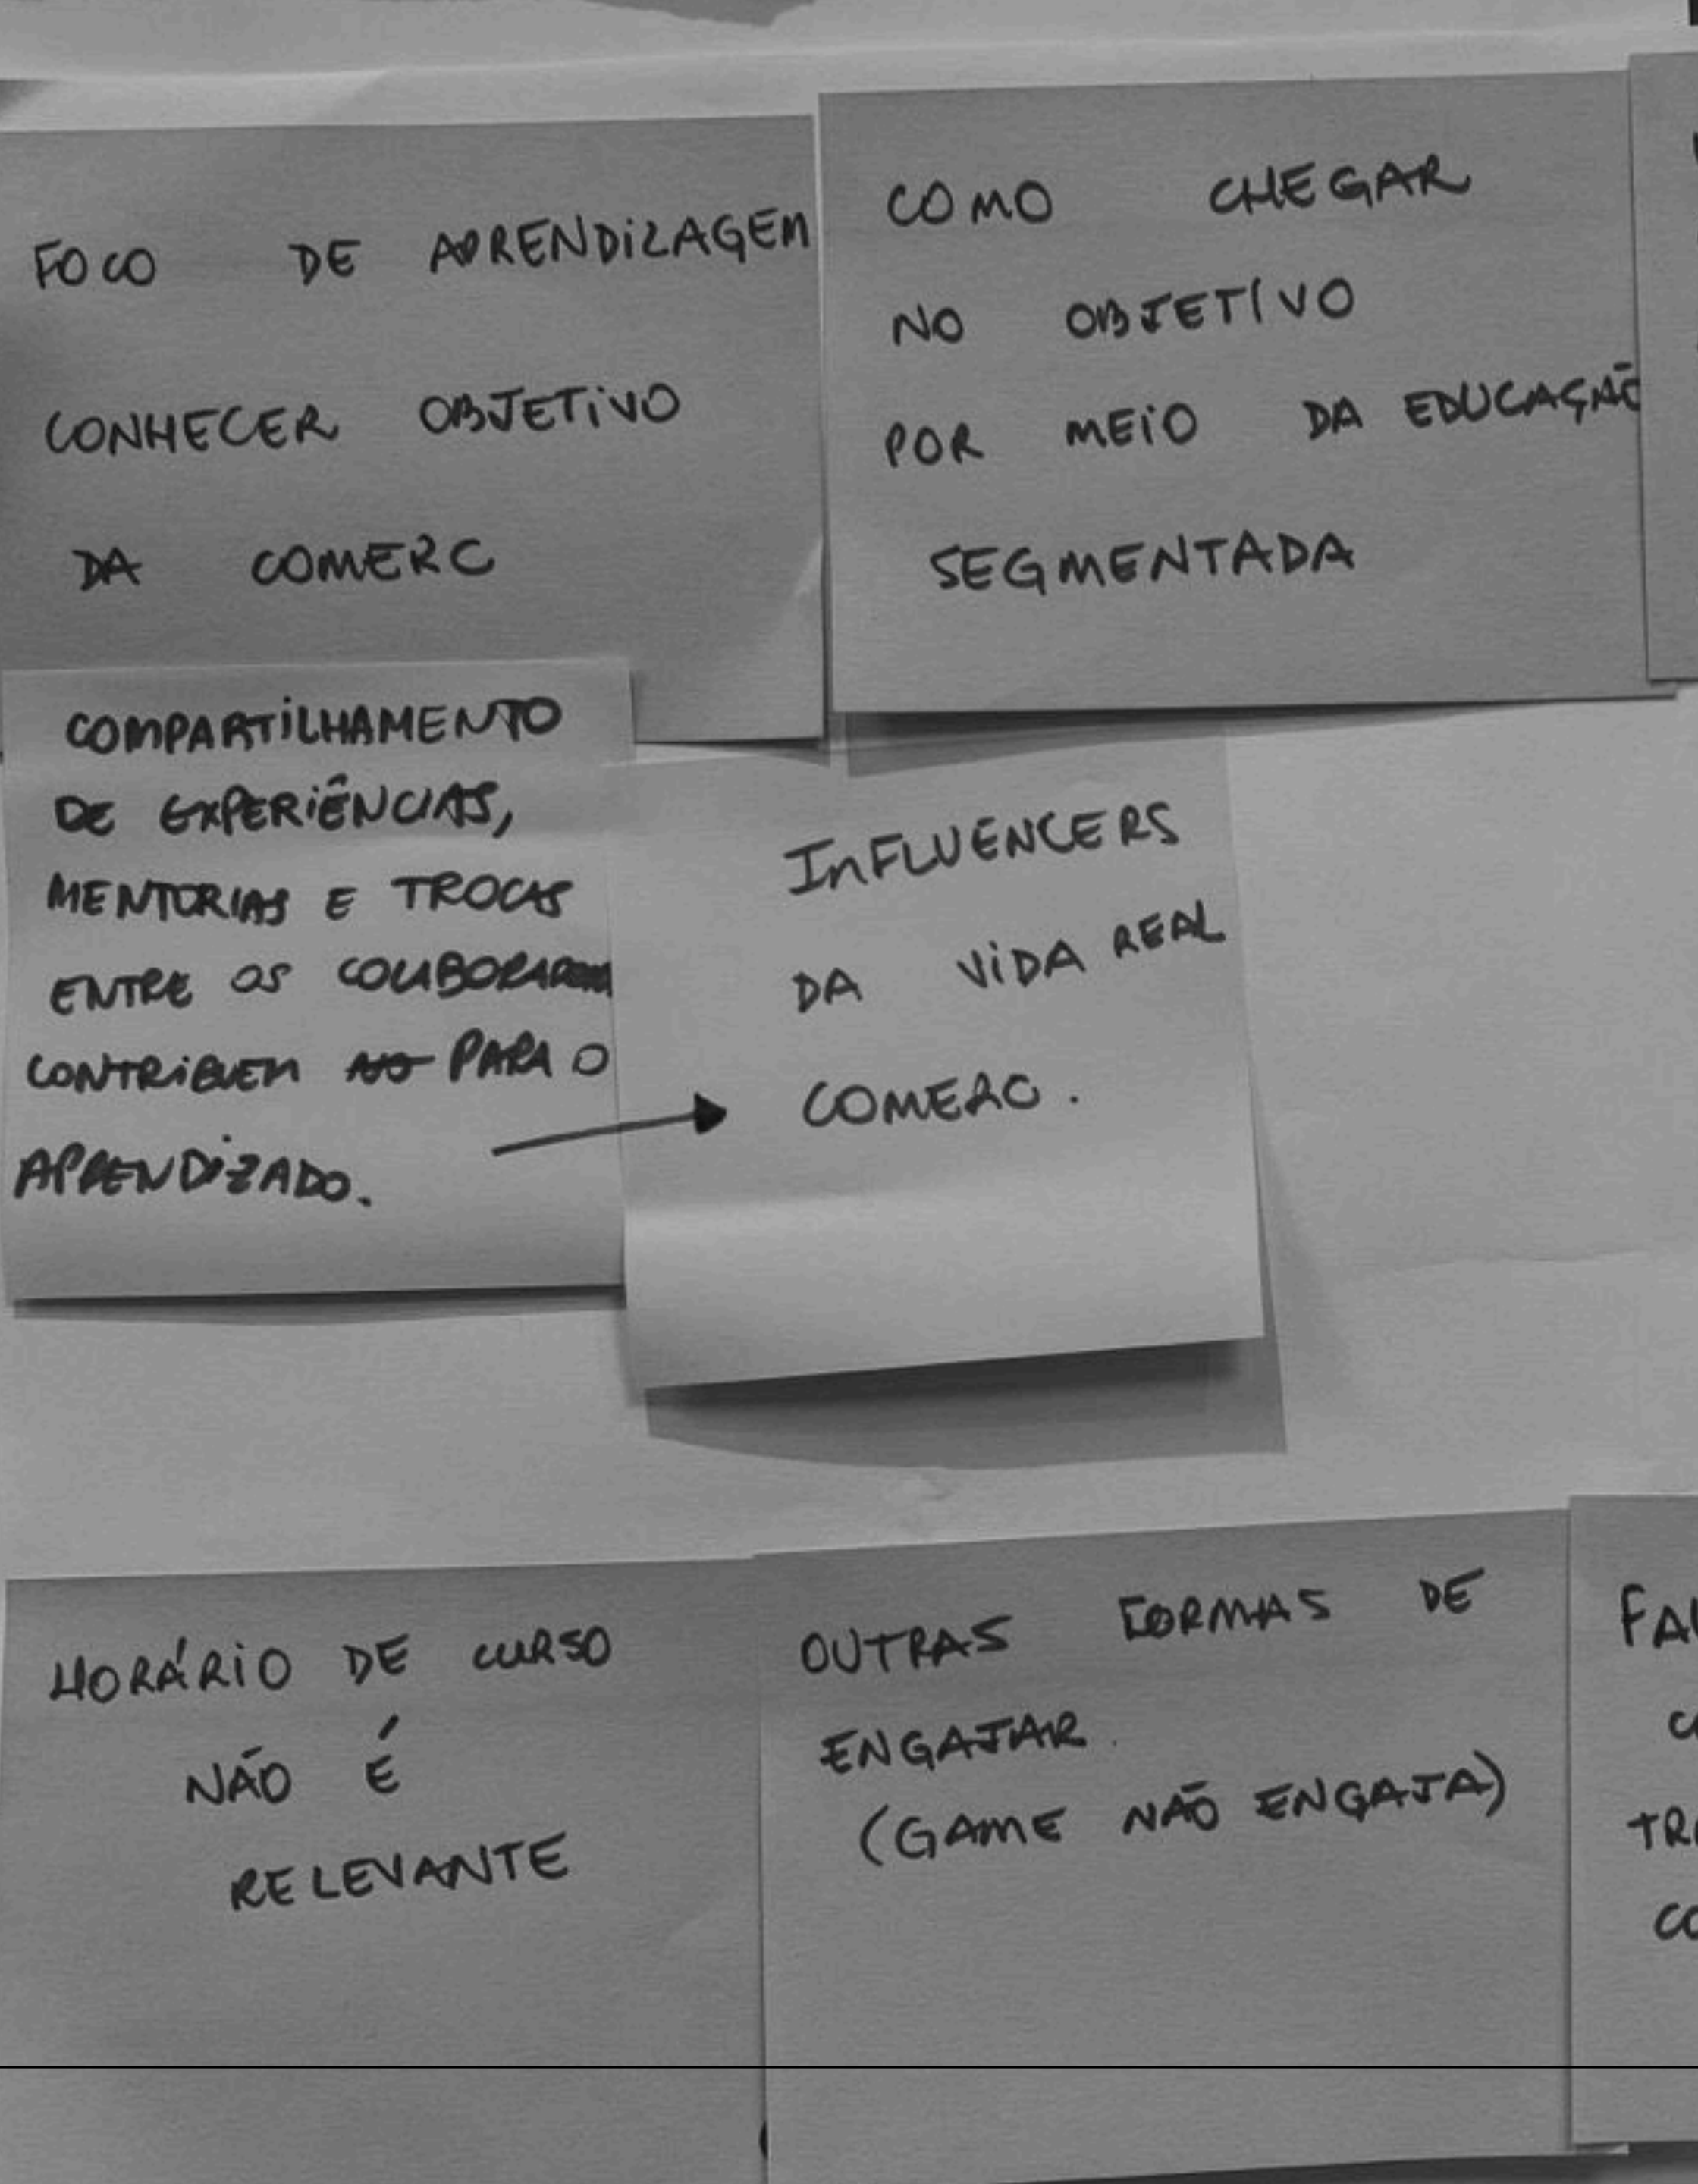 FOCO DE APRENDIZAGEM
CONHECER OBJETIVO
DA COMERC
COMO CHEGAR
NO OBJETIVO
POR MEIO DA EDUCAÇÃO
SEGMENTADA
COMPARTILHAMENTO
DE EXPERIÊNCIAS,
MENTORIAS E TROCAS
ENTRE OS
CONTRIBUEM PARA O
APRENDIZADO.
INFLUENCERS
DA VIDA REAL
COMERC.
HORÁRIO DE CURSO
NÃO É
RELEVANTE
OUTRAS FORMAS DE
ENGAJAR.
(GAME NÃO ENGAJA)